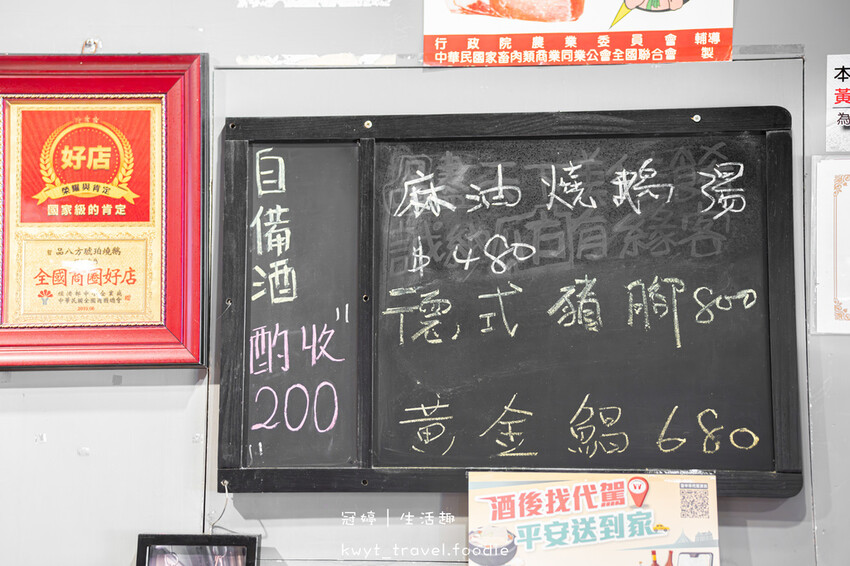 行政院農業委員會輔導
中華民國家畜肉類商業同業公會全國聯合會 製
好店
榮耀與肯定
國家級的肯定
品八方琥珀燒鵝
全國商圈好店
自備酒
酌收"
200
"
麻油燒鵝湯
$480
德式豬腳800
黃金鯧680
本
黃
為
酒後找代駕
平安送到家
冠婷｜生活趣
kwyt_travel.foodie